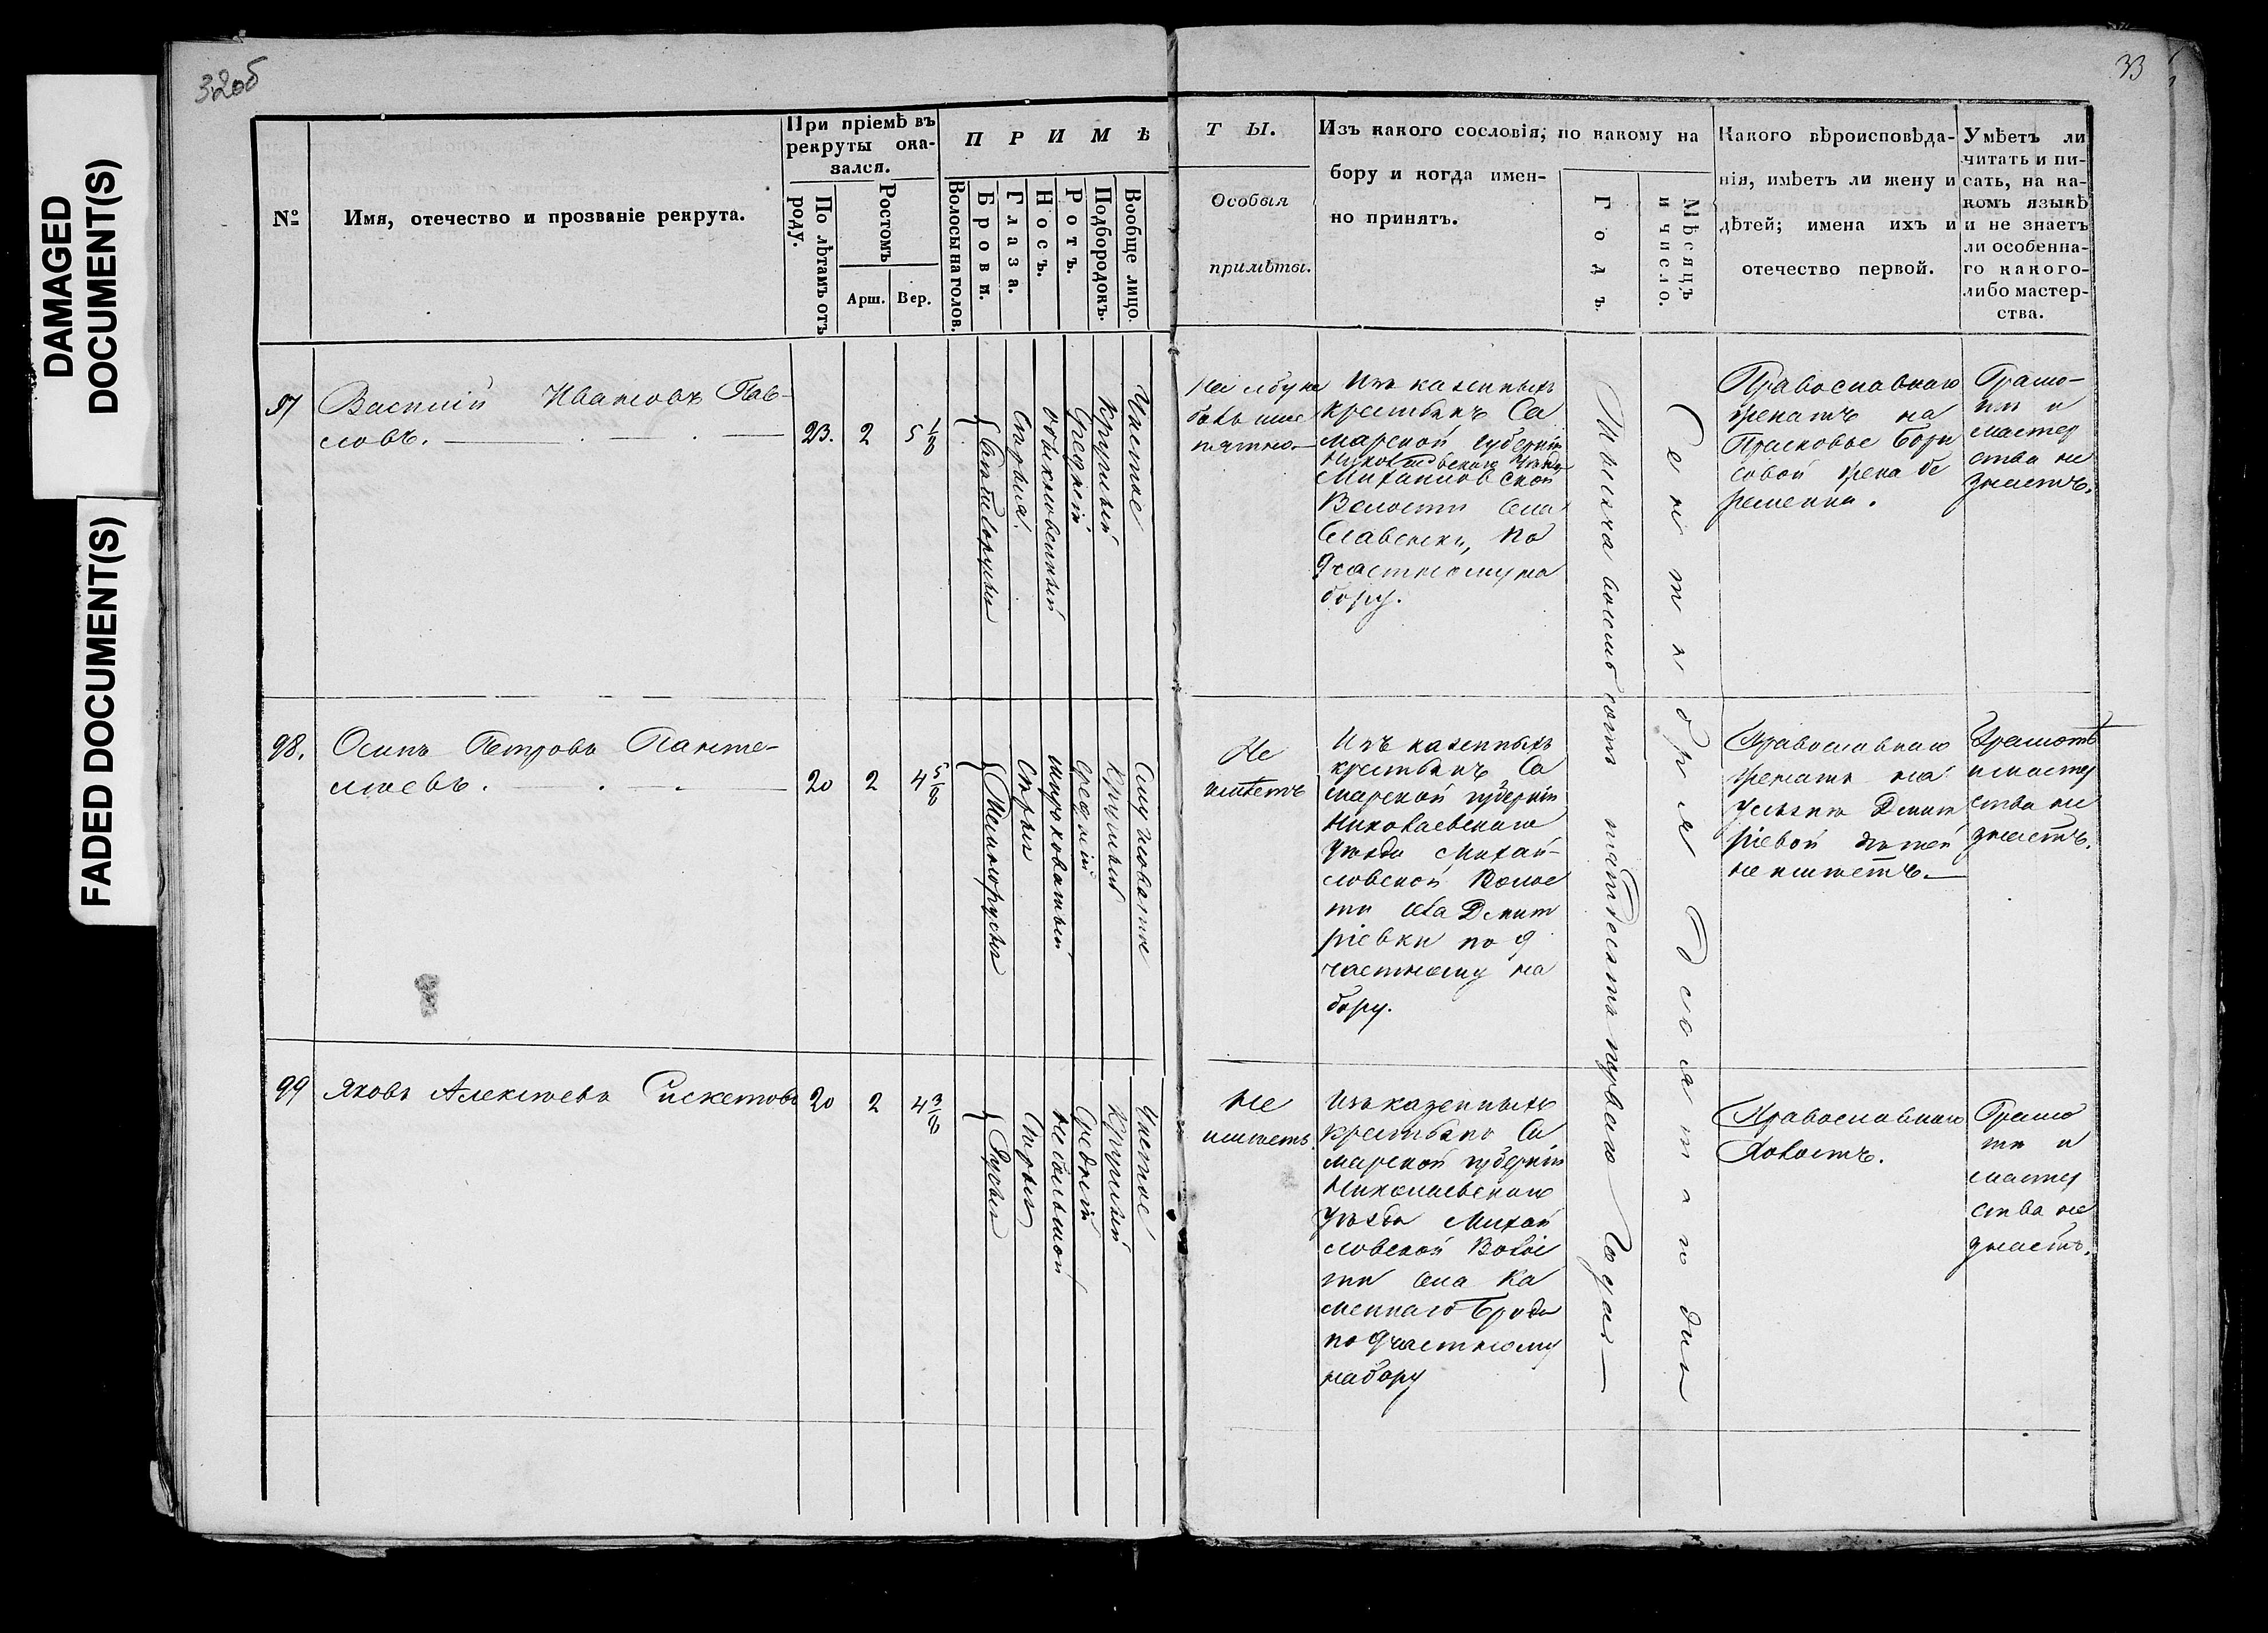 DAMAGED
DOCUMENT(S)
FADED DOCUMENT(S)
32об
33
№
Имя, отечество и прозваніе рекрута.
При пріемѣ въ
рекруты ока-
зался.
По лѣтамъ отъ
роду.
Ростомъ
Арш.
Вер.
П Р И М Ѣ
Волосы на голов.
Брови.
Глаза.
Носъ.
Ротъ.
Подбородокъ.
Вообще лицо.
Т Ы.
Особыя
примѣты.
Изъ какого сословія, по какому на
бору и когда имен-
но принятъ.
Годъ
Мѣсяцъ
и число.
Какого вѣроисповѣда-
нія, имѣетъ ли жену и
дѣтей; имена ихъ и
отечество первой.
Умѣетъ ли
читать и пи-
сать, на ка-
комъ языкѣ
и не знаетъ
ли особенна-
го какого-
либо мастер-
ства.
97
Василій Ивановъ Пав-
ловъ.
23.
2
5 1/8
Свѣтлорусые
Сѣрыя
обыкновенный
Средній
Круглый
Чистое
пятно
Изъ казенныхъ
крестьянъ Са
марской губерніи
Николаевскаго Уѣзда
Михайловской
Волости села
Славенки, по
9 частному на
бору.
Тысяча восемь сотъ пятьдесятъ перваго Года
Сентября Десятаго дня
Православнаго
женатъ на
Прасковье Бори
совой жена бе
ременна.
Грамо-
ты и
мастер
ства не
знаетъ.
98.
Осипъ Петровъ Панте-
лѣевъ.
20
2
4 5/8
Темнорусыя
Сѣрыя
широковатый
средній
круглый
Смугловатое
Не
имѣетъ
Изъ казенныхъ
крестьянъ Са
марской губерніи
Николаевскаго
Уѣзда Михай-
ловской Волос
ти села Дмит
ріевки по 9
частному на
бору.
Православнаго
женатъ на
Дмит
ріевой дѣтей
не имѣетъ.
Грамотѣ
и мастер
ства не
знаетъ.
99
Яковъ Алексѣевъ
20
2
4 3/8
Русыя
Сѣрыя
небольшой
Средній
Круглый
Чистое
Не
имѣетъ
Изъ казенныхъ
крестьянъ Са
марской губерніи
Николаевскаго
Уѣзда Михай
ловской Волос
ти села Ка
меннаго Брода
по 9 частному
набору
Православнаго
Холостъ.
Грамо
ты и
мастер
ства не
знаетъ.